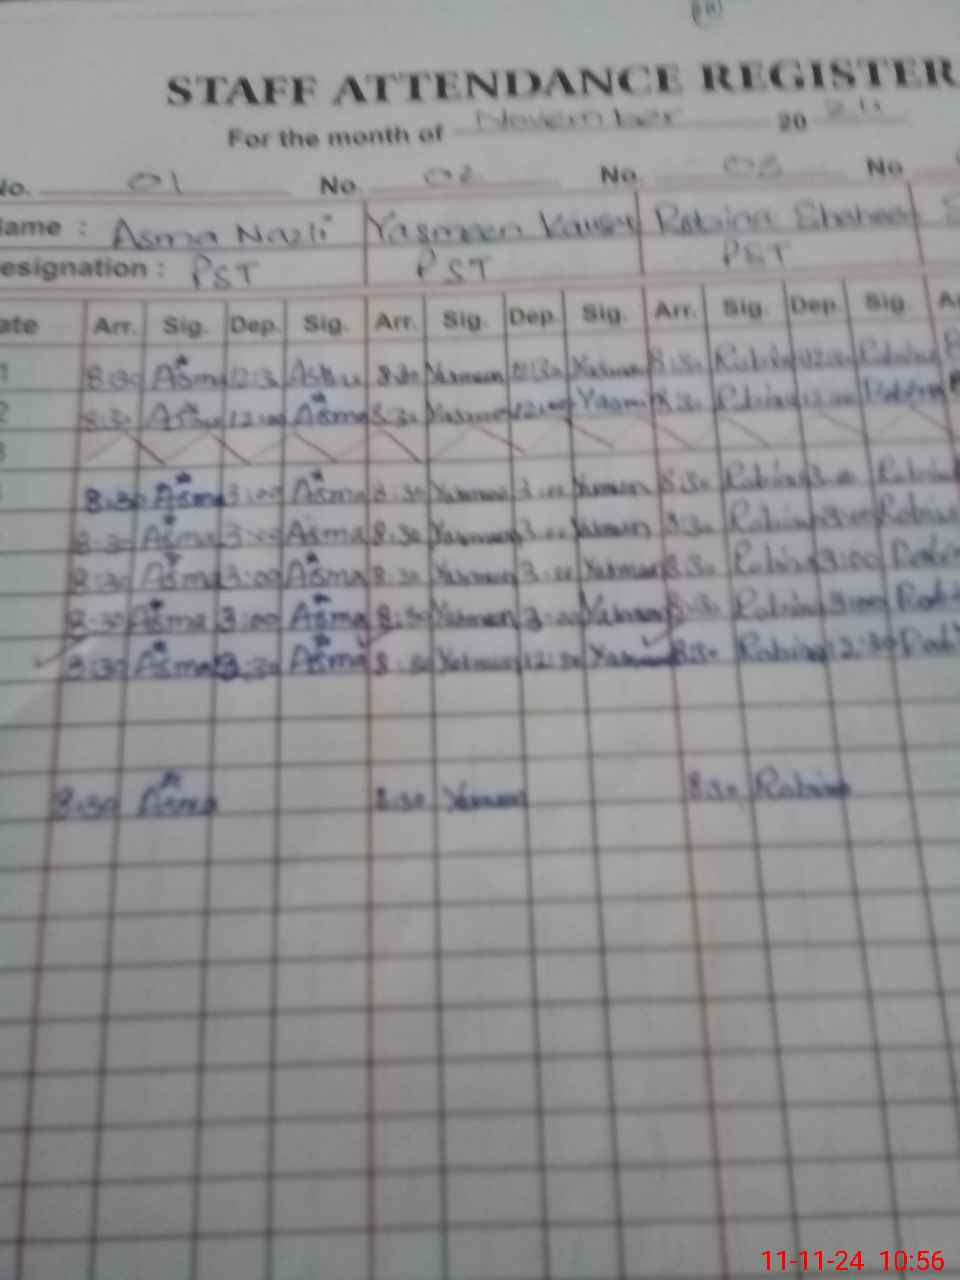 STAFF ATTENDANCE REGISTER
For the month of November 20 24
No. 01 No. 02 No. 03 No.
Name : Asma Nazli Yasmeen Kausar Robina Shaheen
Designation : PST PST PST
Date Arr. Sig. Dep. Sig. Arr. Sig. Dep. Sig. Arr. Sig. Dep. Sig.
1 8:30 Asma 12:30 Asma 8:30 Yasmeen 12:30 Yasmeen 8:30 Robina 12:30 Robina
2 8:30 Asma 12:00 Asma 8:30 Yasmeen 12:00 Yasm 8:30 Robina 12:00 Robina
3
8:30 Asma 3:00 Asma 8:30 Yasmeen 3:00 Yasmeen 8:30 Robina 3:00 Robina
8:30 Asma 3:00 Asma 8:30 Yasmeen 3:00 Yasmeen 8:30 Robina 3:00 Robina
8:30 Asma 3:00 Asma 8:30 Yasmeen 3:00 Yasmeen 8:30 Robina 3:00 Robin
8:30 Asma 3:00 Asma 8:30 Yasmeen 3:00 Yasmeen 8:30 Robina 3:00 Rob
8:30 Asma Asma 8:30 Yasmeen 12:30 Yasmeen 8:30 Robina 12:30 Rob
8:30 Asma 8:30 Yasmeen 8:30 Robina
11-11-24 10:56